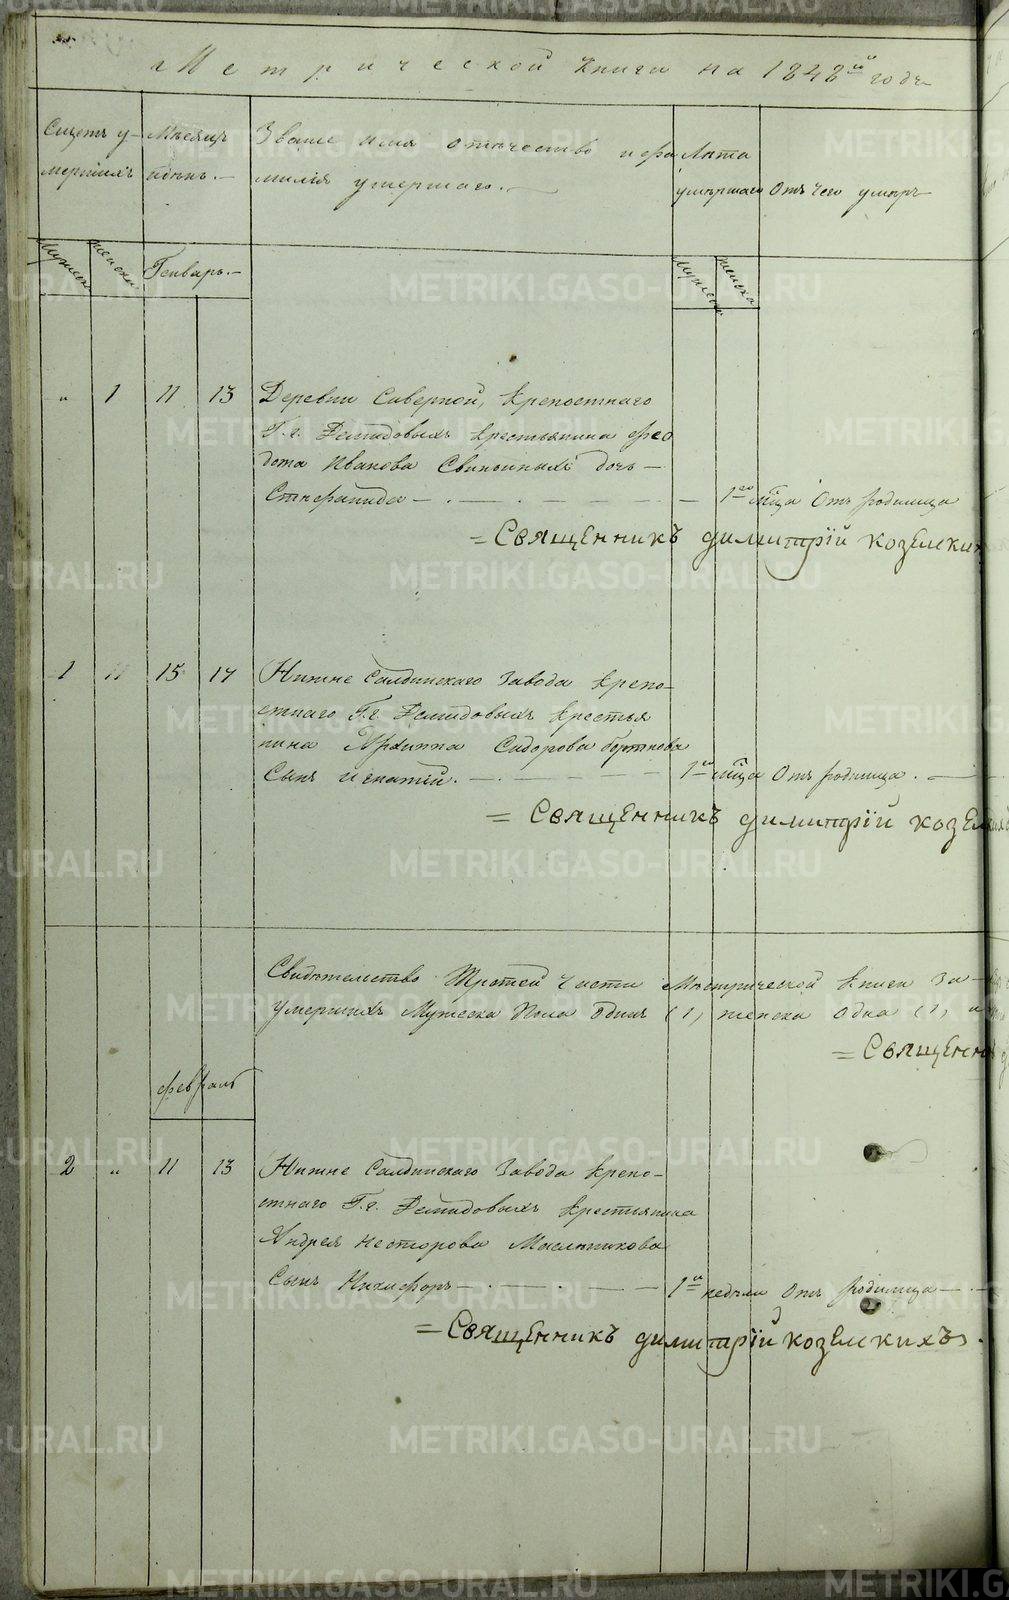 Метрической книги на 1848й годъ
Счетъ у-
мершихъ
Мѣсяцъ
и день.
Званіе имя отчество и фа
милія умершаго.
Лѣта
умершаго
Отъ чего умеръ
Мужеск
женска
Генварь.
Мужеска
женска
" 1 11 13 Деревни Северной, крепостнаго
Г. г. Демидовыхъ крестьянина Фео
дота Иванова Свининыхъ дочь
Стефанида 1го мѣца Отъ родимца
= Священникъ Димитрій Козелских
1 " 15 17 Нижне Салдинскаго Завода крепо-
стнаго Г. г. Демидовыхъ крестья
нина Архиппа Сидорова бортнова
Сынъ Игнатій. 1го мѣца Отъ родимца.
= Священникъ Димитрій Козелских
Свидѣтельство Третей Части Метрической книги За
умершихъ Мужеска Пола Одинъ (1, женска одна (1, и
= Священн
февраль
2 " 11 13 Нижне Салдинскаго Завода крепо-
стнаго Г. г. Демидовыхъ крестьянина
Андрея Нестерова Масленикова
Сынъ Никифоръ 1й недели Отъ родимца
= Священникъ Димитрій Козелскихъ.
METRIKI.GASO-URAL.RU